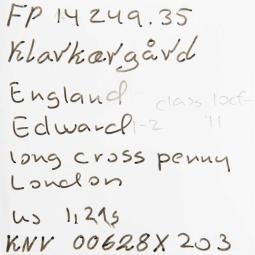 FP 14249.35
Klarkærgård
England class 10cf-
Edward 1-2 11
long cross penny
London
us 1,21s
KNV 00628X203